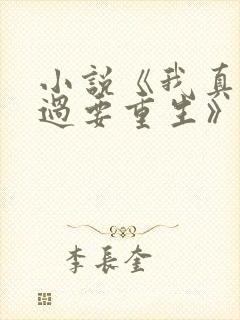 小說《我真
過要重生》
李長奎